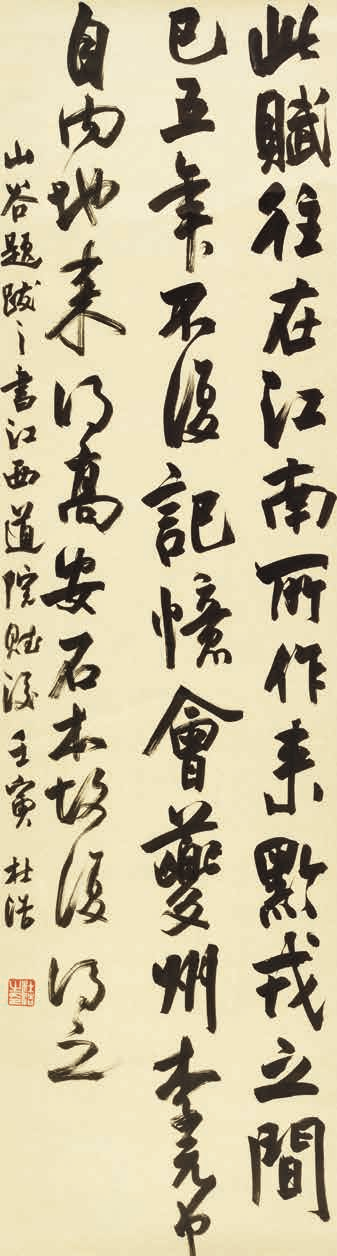 此賦往在江南所作來黔戎之間
已五年不復記憶會夔州李元中
自內地來得高安石本故復得之
山谷題跋之書江西道院賦後壬寅 杜浩